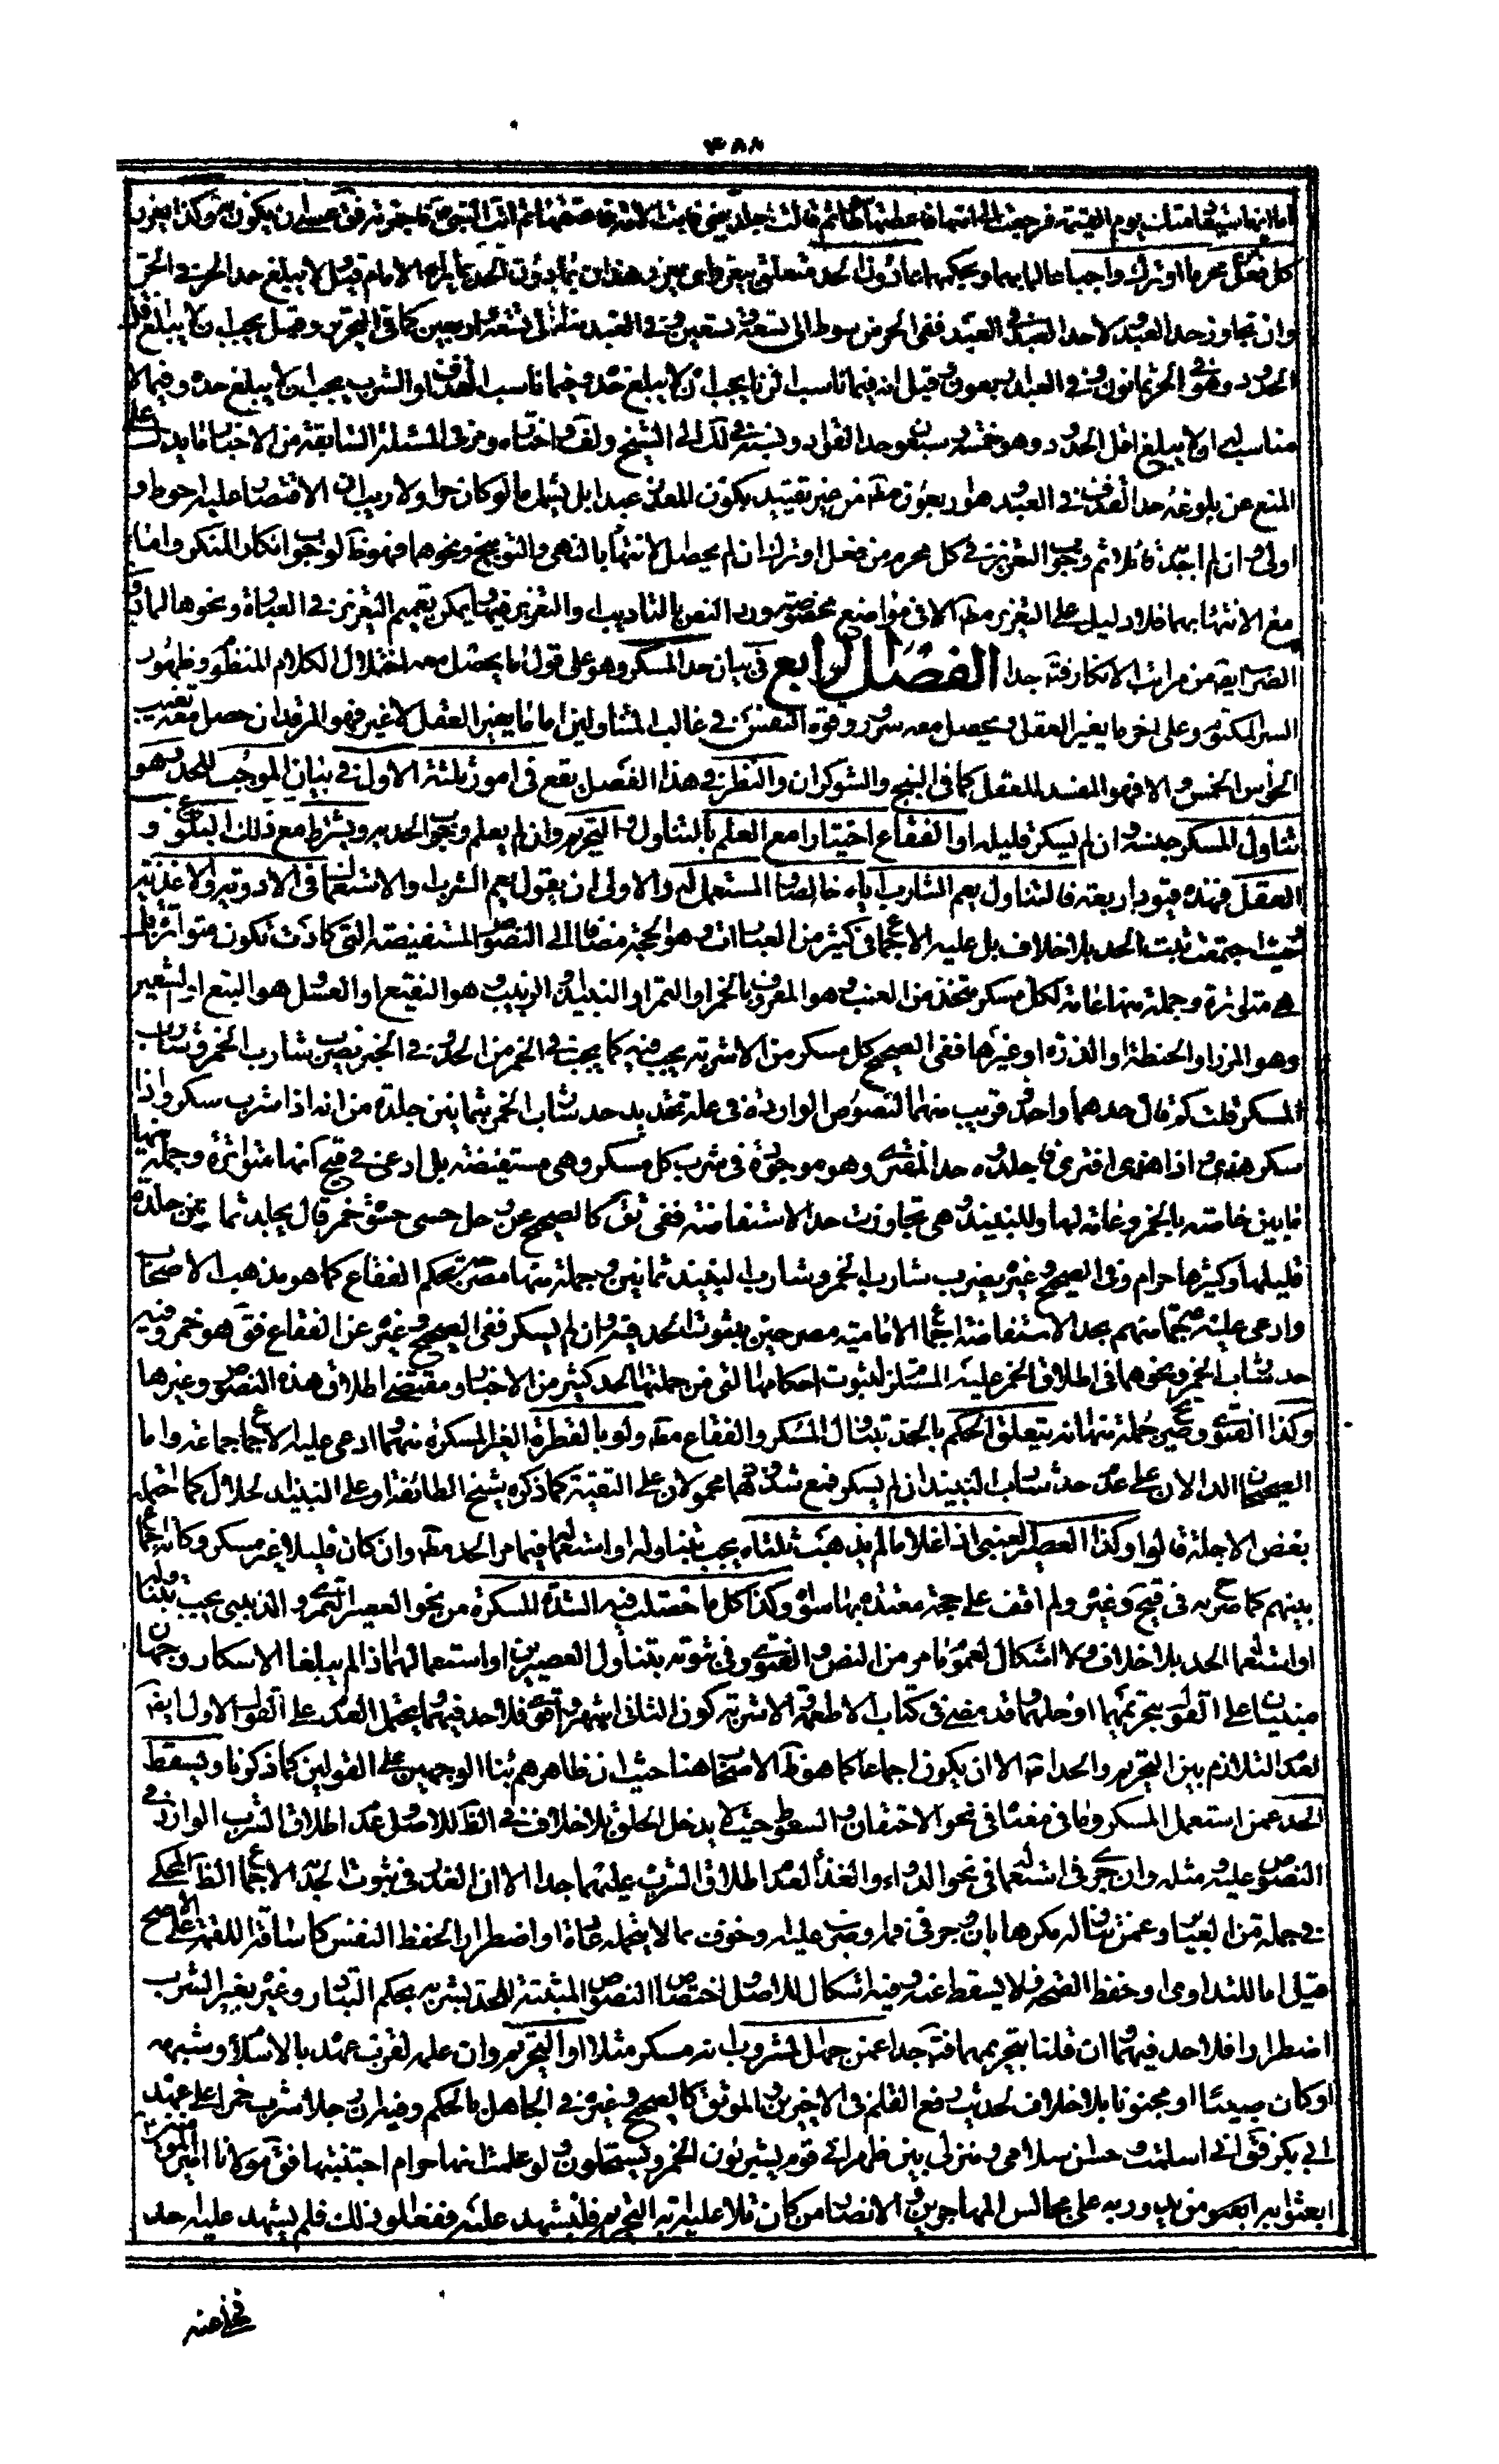 ٤٨٨
اما انها ستقاد منك يوم القيمة فرجعت الى امتها فاعطتها سوطا ثم قالت اجلديني فابت الامة فاعتقتها ثم اتت النبي ص فاخبرته فق عسى ان يكون به وكذا يعزر
كل من فعل محرما او ترك واجبا عالما بهما وبحكمهما بما دون الحد متعلق بيعزر اي يعزر هذان بما دون الحد بما يراه الامام قيل لا يبلغ حد الحر في الحر
وان تجاوز حد العبد ولا حد العبد في العبد ففي الحر من سوط الى تسعة وتسعين وفي العبد منه الى تسعة واربعين كما في التحرير وقيل يجب ان لا يبلغ اقل
الحدود وهو في الحر ثمانون وفي العبد اربعون وقيل انه فيما ناسب الزنا يجب ان لا يبلغ حده وفيما ناسب القذف او الشرب يجب ان لا يبلغ حده وفيما لا
مناسب له ان لا يبلغ اقل الحدود وهو خمسة وسبعون حد القواد ونسب ذلك الى الشيخ ولف واختاه ومر في المسئلة السابقة من الاخبار ما يدل على
المنع عن بلوغه حد القذف في العبد وهو اربعون مطم من غير تقييد بكون المعزر عبدا بل يشمل ما لو كان حرا ولا ريب ان الاقتصار عليه احوط و
اولى وان لم اجد قائلا به ثم وجوب التعزير في كل محرم من فعل او ترك ان لم يحصل الانتهاء بالنهي والتوبيخ ونحوهما فهو ظ لوجوب انكار المنكر واما
مع الانتهاء بهما فلا دليل على التعزير مطم الا في مواضع مخصوصة ورد النص بالتاديب والتعزير فيها ويمكن تعميم التعزير في العبارة ونحوها لما دون
الضرب ايضا من مراتب الانكار فتم جدا الفصل الرابع في بيان حد المسكر وهو على قول ما يحصل معه اختلال الكلام المنظوم وظهور
السر المكتوم وعلى اخر ما يغير العقل ويحصل معه سرور وقوة النفس في غالب المتناولين اما ما يغير العقل لا غير فهو المرقد ان حصل معه تغييب
الحواس الخمس والا فهو المفسد للعقل كما في البنج والشوكران والنظر في هذا الفصل يقع في امور ثلثة الاول في بيان الموجب للحد وهو
تناول المسكر جنسه وان لم يسكر قليله او الفقاع اختيارا مع العلم بالتناول والتحريم وان لم يعلم وجوب الحد به ويشترط مع ذلك البلوغ و
العقل فهذه قيود اربعة فالتناول يعم الشارب اياه خالصا والمستعمل له والاولى ان يقول يعم الشرب والاستعمال في الادوية والاغذية
فحيث اجتمعت ثبت الحد بلا خلاف بل عليه الاجماع في كثير من العبارات وهو الحجة مضافا الى النصوص المستفيضة التي كادت تكون متواترة بل
هي متواترة وجملة منها عامة لكل مسكر متخذ من العنب وهو المعروف بالخمر او التمر او النبيذ او الزبيب وهو النقيع او العسل هو البتع او الشعير
وهو المزر او الحنطة او الذرة او غيرها ففي الصحيح كل مسكر من الاشربة يجب فيه كما يجب في الخمر من الحد وفي الخبر يضرب شارب الخمر وشارب
المسكر قلت كم قال حدهما واحد وقريب منهما النصوص الواردة في علة تحديد حد شارب الخمر بثمانين جلدة من انه اذا شرب سكر واذا
سكر هذى واذا هذى افترى فاجلدوه حد المفترى وهو موجودة في شرب كل مسكر وهي مستفيضة بل ادعى في قيح كونها متواترة وجملة منها
ما بين خاصة بالخمر وعامة لها وللنبيذ وهي تجاوزت حد الاستفاضة ففي ثق كالصحيح عن رجل حسى حسوة خمر قال يجلد ثمانين جلدة
قليلها وكثيرها حرام وفي الصحيح وغيره يضرب شارب الخمر وشارب النبيذ ثمانين وجملة منها مصرحة بحكم الفقاع كما هو مذهب الاصحاب
وادعى عليه جماعة منهم بحد الاستفاضة اجماع الامامية مصرحين بثبوت الحد فيه وان لم يسكر ففي الصحيح وغيره عن الفقاع فق هو خمر وفيه
حد شارب الخمر ونحوهما في اطلاق الخمر عليه المستلزم لثبوت احكامها التي من جملتها الحد كثير من الاخبار ومقتضى اطلاق هذه النصوص وغيرها
وكذا الفتوى وصريح جملة منها انه يتعلق الحكم بالحد بتناول المسكر والفقاع مطم ولو بالقطرة الغير المسكرة منهما وادعى عليه الاجماع جماعة واما
الصحيحان الدالان على عدم حد شارب النبيذ ان لم يسكر فمع شذوذهما محمولان على التقية كما ذكره شيخ الطائفة او على النبيذ الحلال كما احتمله
بعض الاجلة قالوا وكذا العصير العنبي اذا غلا ما لم يذهب ثلثاه يجب بتناوله او استعماله فيما مر الحد مطم وان كان قليلا غير مسكر وكانه اجماع
بينهم كما صرح به في قيح وغيره ولم اقف على حجة معتد بها سواه وكذا كل ما حصلت فيه الشدة المسكرة من نحو العصير التمري والزبيبي يجب بتناوله
او استعماله الحد بلا خلاف ولا اشكال لعموم ما مر من النص والفتوى وفي ثبوته بتناول العصيرين او استعمالهما اذا لم يبلغا الاسكار وجهان
مبنيان على القول بتحريمهما او حلهما وقد مضى في كتاب الاطعمة والاشربة كون الثاني اشهر واقوى فلا حد فيهما ويحتمل العدم على القول الاول ايضا
لعدم التلازم بين التحريم والحد اذ الا ان يكون اجماعا كما هو ظ الاصحاب هنا حيث ان ظاهرهم بناء الوجهين على القولين كما ذكرنا ويسقط
الحد عمن استعمل المسكر وما في معناه في نحو الاحتقان والسعوط حيث لا يدخل الحلق بلا خلاف في الظ للاصل وعدم اطلاق الشرب الوارد في
النصوص عليه ومثله وان جرى في استعماله في نحو الدواء والغذاء لعدم اطلاق الشرب عليهما جدا الا ان الفارق في ثبوت الحد الاجماع الظ المحكي
في جملة من العبارات وعمن تناوله مكرها بان وجر في فمه او ضرب عليه وخوف بما لا يتحمله عادة او اضطرار الحفظ النفس كاساغة اللقمة على الاصح
قيل اما للتداوي او حفظ الصحة فلا يسقط عنه وفيه اشكال للاصل واختصاص النصوص المثبتة للحد بشربه بحكم التبادر وغيره بغير الشرب
اضطرارا فلا حد فيهما وان قلنا بتحريمهما فتم جدا وعمن جهل المشروب انه مسكر مثلا او التحريم وان علمه لقرب عهده بالاسلام وشبهه
او كان صبيا او مجنونا بلا خلاف لحديث رفع القلم في الاخيرين والموثق كالصحيح وغيره في الجاهل بالحكم وفيه ان رجلا شرب خمرا على عهد
ابي بكر فق اني اسلمت وحسن اسلامي ومنزلي بين ظهراني قوم يشربون الخمر ويستحلون ولو علمت انها حرام اجتنبتها فق مولانا امير المؤمنين ع
ابعثوا به من يدور به على مجالس المهاجرين والانصار من كان تلا عليه اية التحريم فليشهد عليه ففعلوا ذلك فلم يشهد عليه احد
فخلى عنه